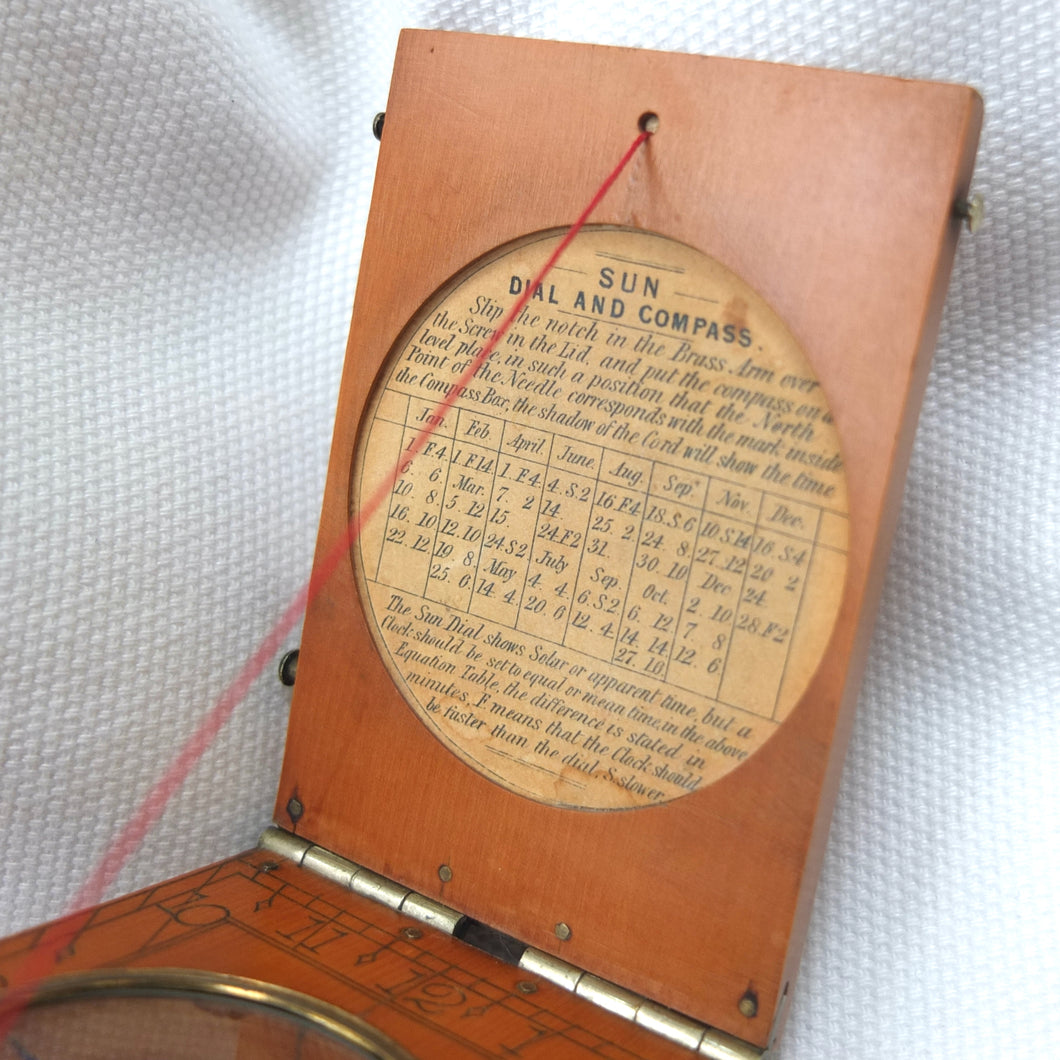 SUN
DIAL AND COMPASS.
Slip the notch in the Brass Arm over
the Screw in the Lid and put the compass on a
level place, in such a position that the North
Point of the Needle corresponds with the mark inside
the Compass Box, the shadow of the Cord will show the time
Jan. Feb. April. June. Aug. Sep.r Nov. Dec.
1. F.4. 1. F.14. 1. F.4. 4. S.2 16.F.4 18.S.6 10.S.14 16. S.4
6. 6 Mar. 7. 2 14. 25. 2. 24. 8. 27. 12 20 2
10. 8. 5. 12 15. 24.F.2 31. 30. 10 Dec 24.
16. 10 12. 10 24.S.2. July Sep. Oct. 2. 10 28.F.2
22. 12. 19. 8. May 4. 4. 6.S.2. 6. 12 7. 8
25. 6. 14. 4. 20. 6 12. 4. 14. 14 12. 6.
27. 16.
The Sun Dial shows Solar or apparent time, but a
Clock should be set to equal or mean time, in the above
Equation Table, the difference is stated in
minutes, F. means that the Clock should
be faster than the dial, S. slower
10 11 12 1